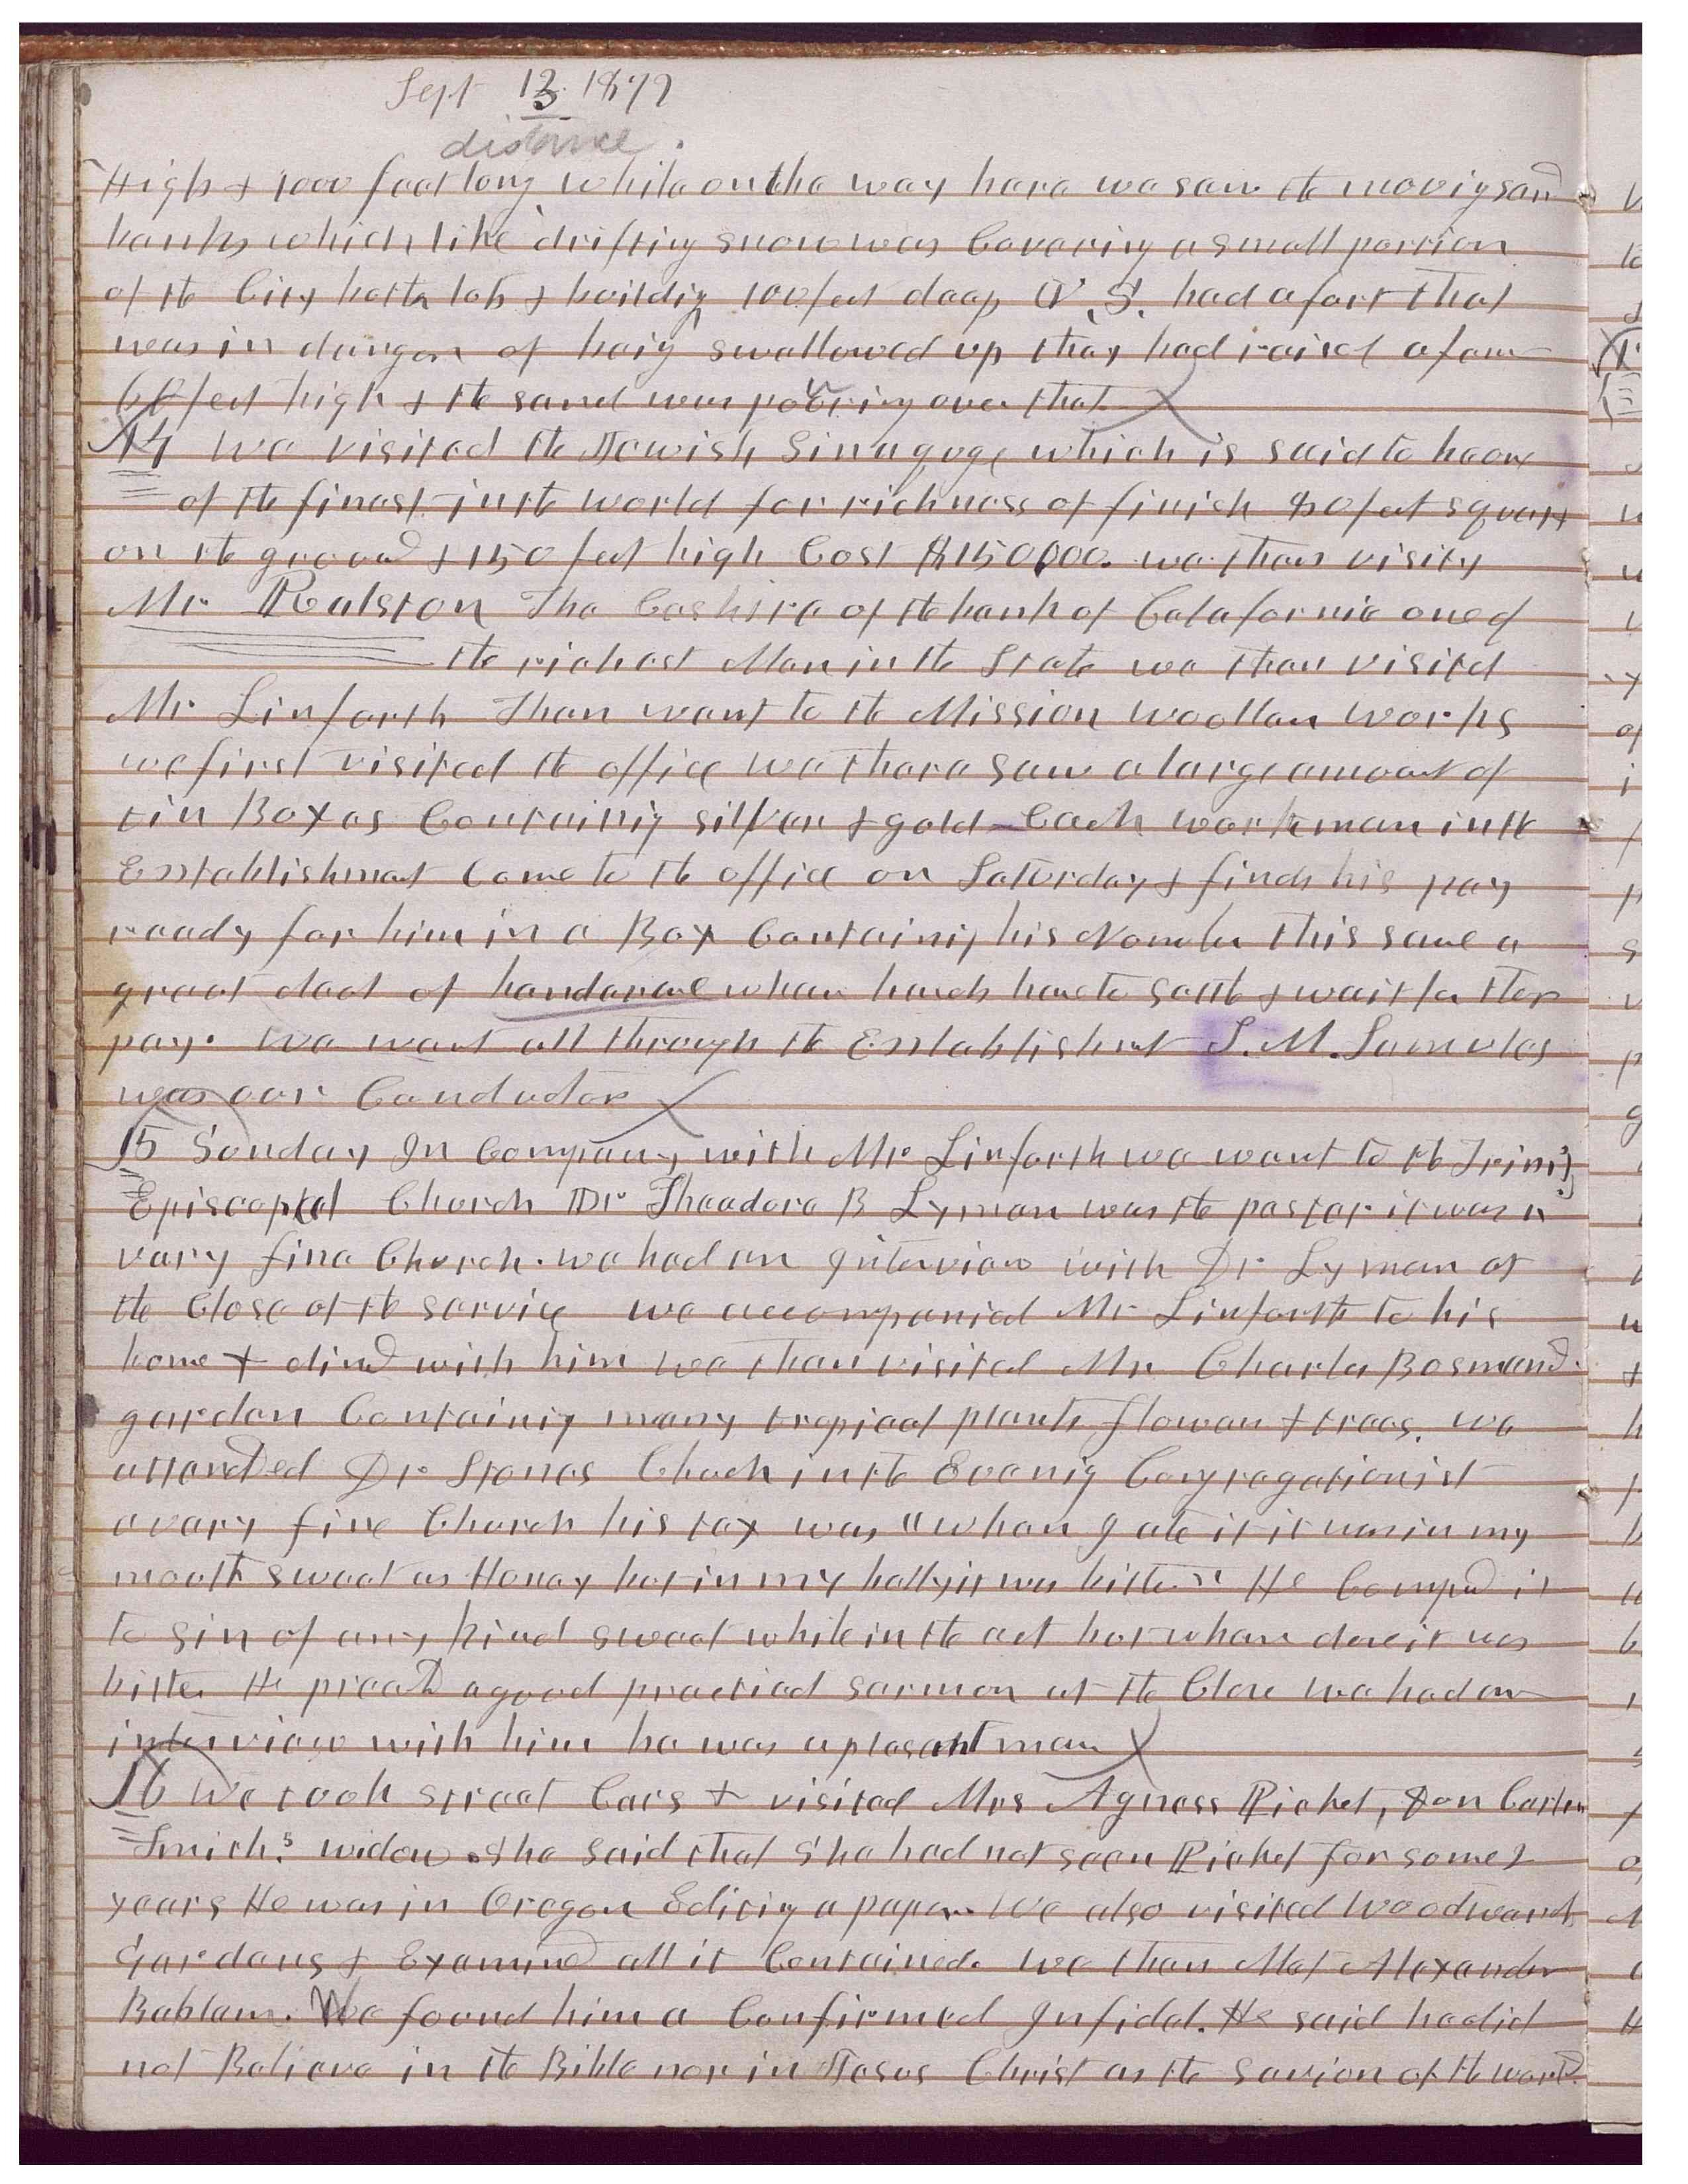 Sept 13. 1872
distance.
High & 1000 feet long while on the way here we saw the movig sand
banks which like drifting snow was Covering a small portion
of the City both lots & buildig 100 feet deep U. S. had a fort that
was in danger of beig swallowed up they had raisd a fence
60 feet high & the sand was pouring over that
14 We visited the Jewish Sinagoge which is said to be one
of the finest in the world for richness of finish 80 feet square
on the ground & 150 feet high Cost $150000. we then visity
Mr. Ralston The Cashire of the bank of Calafornia one of
the richest Men in the State we then visitd
Mr Linforth Then went to the Mission Woollen Works
we first visited the office we there saw a large amount of
tin Boxes Containig silver & gold Each workman in the
Establishment Come to the office on Saturday & finds his pay
ready for him in a Box Containig his Number This save a
great deal of hundrance when hands have to settle & wait for ther
pay. We went all through the Establishmt L. M. Samules
was our Conductor
15 Sunday In Company with Mr Linforth we went to the Trinity
Episcopal Church Dr Theadore B Lyman was the pastor it was a
very fine Church. we had an Interview with Dr Lyman at
the Close of the service we accompanied Mr Linforth to his
home & dined with him we then visited Mr Charles Bosmand
garden Containig many tropical plants flowers & trees. we
attended Dr. Stones Church in the Evenig Congregationist
a very fine Church his tax was "when I ate it it was in my
mouth sweet as Honey but in my belly it was bitter" He Compd it
to sin of any kind sweet while in the act but when done it was
bitter He preachd a good practical sermon at the Close we had an
interview with him he was a plesant man
16 We took street Cars & visited Mrs Agness Picket, Don Carlos
Smith's widow. She said that She had not seen Picket for some 2
years He was in Oregon Editig a paper We also visited Woodwards
Gardens & Examined all it Contained. We then Met Alexander
Bablam. We found him a Confirmed Infidel. He said he did
not Believe in the Bible nor in Jesus Christ as the Savior of the world